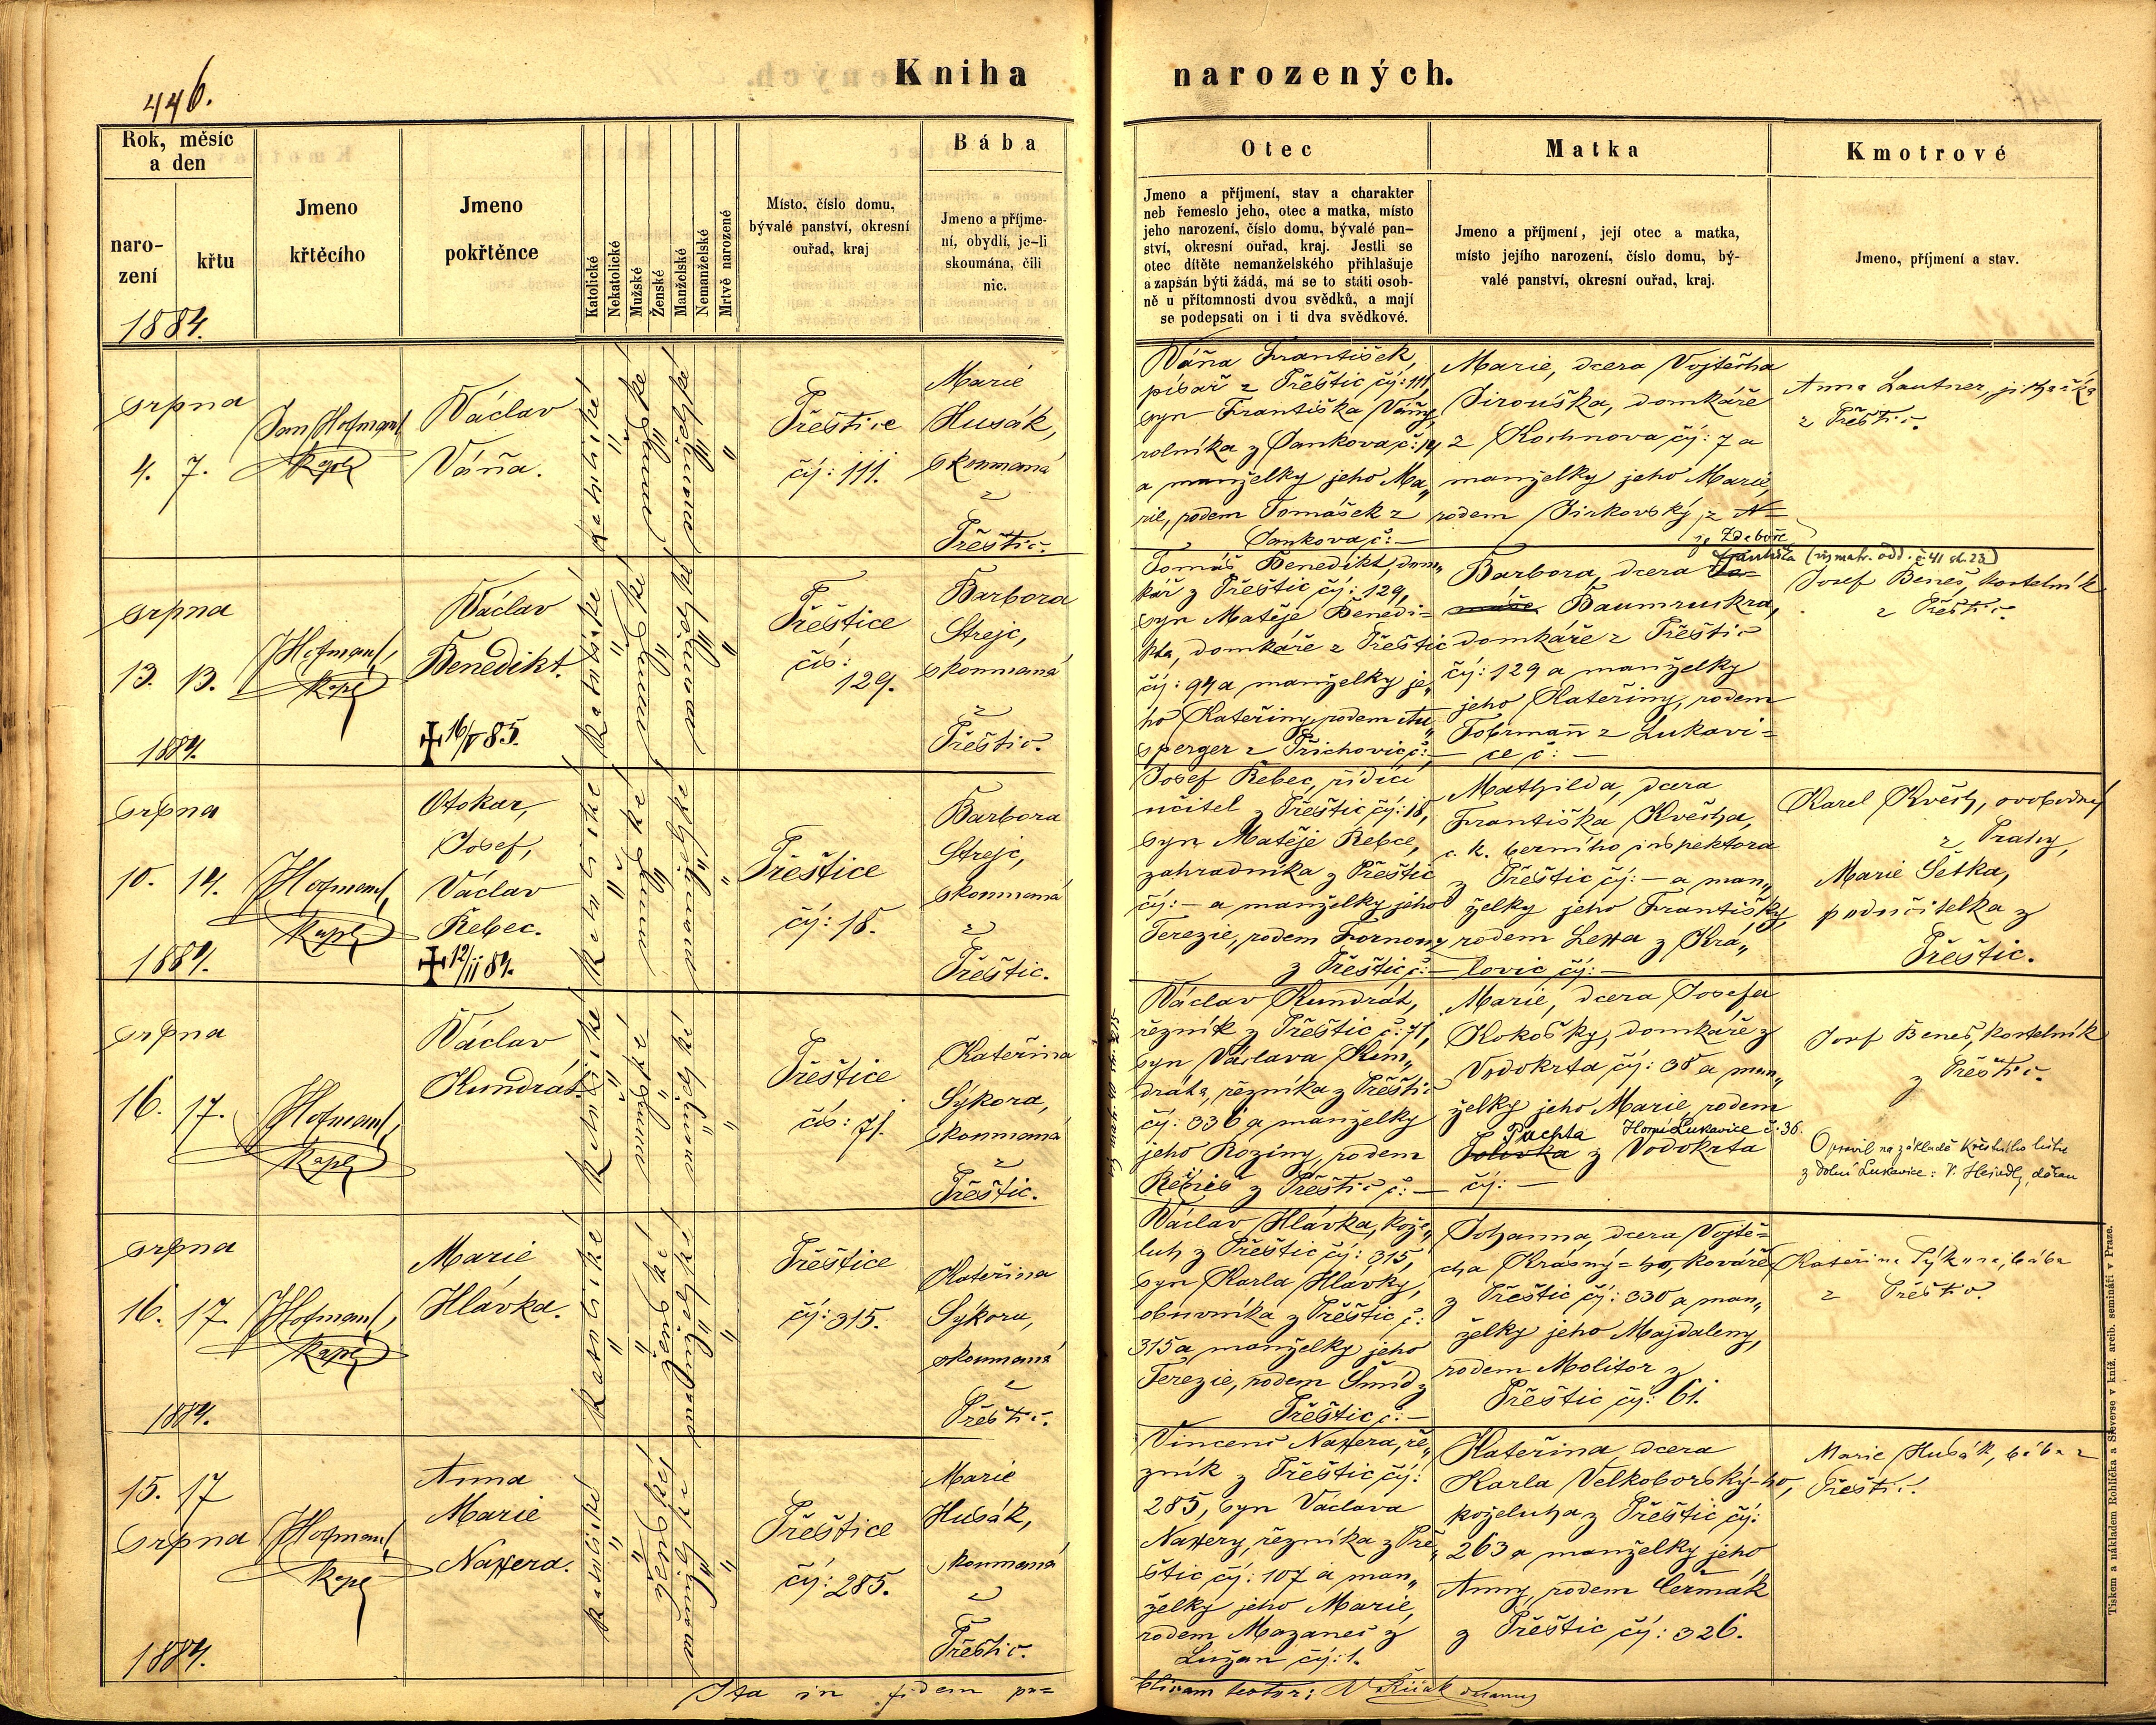 446.
Kniha narozených.
Rok, měsíc
a den
naro-
zení
křtu
1884.
Jmeno
křtěcího
Jmeno
pokřtěnce
Katolické
Nekatolické
Mužské
Ženské
Manželské
Nemanželské
Mrtvě narozené
Místo, číslo domu,
bývalé panství, okresní
ouřad, kraj
Bába
Jmeno a příjme-
ní, obydlí, je-li
skoumána, čili
nic.
Otec
Jmeno a příjmení, stav a charakter
neb řemeslo jeho, otec a matka, místo
jeho narození, číslo domu, bývalé pan-
ství, okresní ouřad, kraj. Jestli se
otec dítěte nemanželského přihlašuje
a zapsán býti žádá, má se to státi osob-
ně u přítomnosti dvou svědků, a mají
se podepsati on i ti dva svědkové.
Matka
Jmeno a příjmení, její otec a matka,
místo jejího narození, číslo domu, bý-
valé panství, okresní ouřad, kraj.
Kmotrové
Jmeno, příjmení a stav.
srpna
4. 7.
Jan Hofmann
kapl
Václav
Váňa.
katolické
mužské
manželské
Přeštice
čís: 111.
Marie
Husák,
skoumaná
z
Přeštic.
Váňa František,
písař z Přeštic čís: 111,
syn Františka Váňy,
rolníka z Dankova č: 14
a manželky jeho Ma„
rie, rodem Tomášek z
Dankova č: —
Marie, dcera Vojtěcha
Jirouška, domkáře
z Kochnova čís: 7 a
manželky jeho Marie,
rodem Jirkovský z
ze Zdeboře
Anna Lautner,
z Přeštic.
srpna
13. 13.
1884.
Hofmann,
kapl
Václav
Benedikt.
✝ 16/V 85.
katolické
mužské
manželské
Přeštice
čís:
129.
Barbora
Strejc,
skoumaná
z
Přeštic.
Tomáš Benedikt, dom„
kář z Přeštic čís: 129,
syn Matěje Benedi-
kta, domkáře z Přeštic
čís: 94 a manželky je„
ho Kateřiny, rodem Au„
sperger z Příchovic č: —
Františka (viz matr. odd. č 41 st. 23)
Barbora, dcera
Baumruckra,
domkáře z Přeštic
čís: 129 a manželky
jeho Kateřiny, rodem
Fohrmann z Lukavi-
ce č: —
Josef Beneš, kostelník
z Přeštic.
srpna
10. 14.
1884.
Hofmann,
kapl
Otokar,
Josef,
Václav
Řebec.
✝ 12/11 84.
katolické
mužské
manželské
Přeštice
čís: 18.
Barbora
Strejc,
skoumaná
z
Přeštic.
Josef Řebec, řídící
učitel z Přeštic čís: 18,
syn Matěje Řebce,
zahradníka z Přeštic
čís: — a manželky jeho
Terezie, rodem
z Přeštic č: —
Mathilda, dcera
Františka Květha,
c. k. berního inspektora
z Přeštic čís: — a man„
želky jeho Františky,
rodem z Krá„
lovic čís: —
Karel Květh, svobodný
z Prahy,
Marie Šetka,
podučitelka z
Přeštic.
srpna
16. 17.
Hofmann,
kapl
Václav
Kundrát.
katolické
mužské
manželské
Přeštice
čís: 71.
Kateřina
Sýkora,
skoumaná
z
Přeštic.
Václav Kundrát,
řezník z Přeštic č: 71,
syn Václava Kun„
dráta, řezníka z Přeštic
čís: 336 a manželky
jeho Roziny, rodem
z Přeštic č: —
Marie, dcera Josefa
Kokošky, domkáře z
Vodokrta čís: 38 a man„
želky jeho Marie, rodem
Puchta Horní Lukavice č: 36.
z Vodokrta
čís: —
Josef Beneš, kostelník
z Přeštic.
Opravil na základě křestního listu
z Dolní Lukavice: V. Hejedlý, děkan
srpna
16. 17.
1884.
Hofmann,
kapl
Marie
Hlávka.
katolické
ženské
manželské
Přeštice
čís: 315.
Kateřina
Sýkora,
skoumaná
z
Přeštic.
Václav Hlávka, kože„
luh z Přeštic čís: 315,
syn Karla Hlávky,
obuvníka z Přeštic č:
315 a manželky jeho
Terezie, rodem Šmíd z
Přeštic č: —
Johanna, dcera Vojtě-
cha Krásný-ho, kováře
z Přeštic čís: 330 a man„
želky jeho Majdaleny,
rodem Molitor z
Přeštic čís: 61.
Kateřina Sýkora, bába
z Přeštic.
15. 17
srpna
1884.
Hofmann,
kapl
Anna
Marie
Naxera.
katolické
ženské
manželské
Přeštice
čís: 285.
Marie
Husák,
skoumaná
z
Přeštic.
Vincenc Naxera, ře„
zník z Přeštic čís:
285, syn Václava
Naxery, řezníka z Pře„
štic čís: 107 a man„
želky jeho Marie,
rodem Mazanec z
Lužan čís: 1.
Kateřina, dcera
Karla Velkoborský-ho,
koželuha z Přeštic čís:
263 a manželky jeho
Anny, rodem Čermák
z Přeštic čís: 326.
Marie Husák, bába z
Přeštic.
Ita in fidem pu-
blicam testor:
Tiskem a nákladem Rohlíčka a Sieverse v kníž. arcib. semináři v Praze.